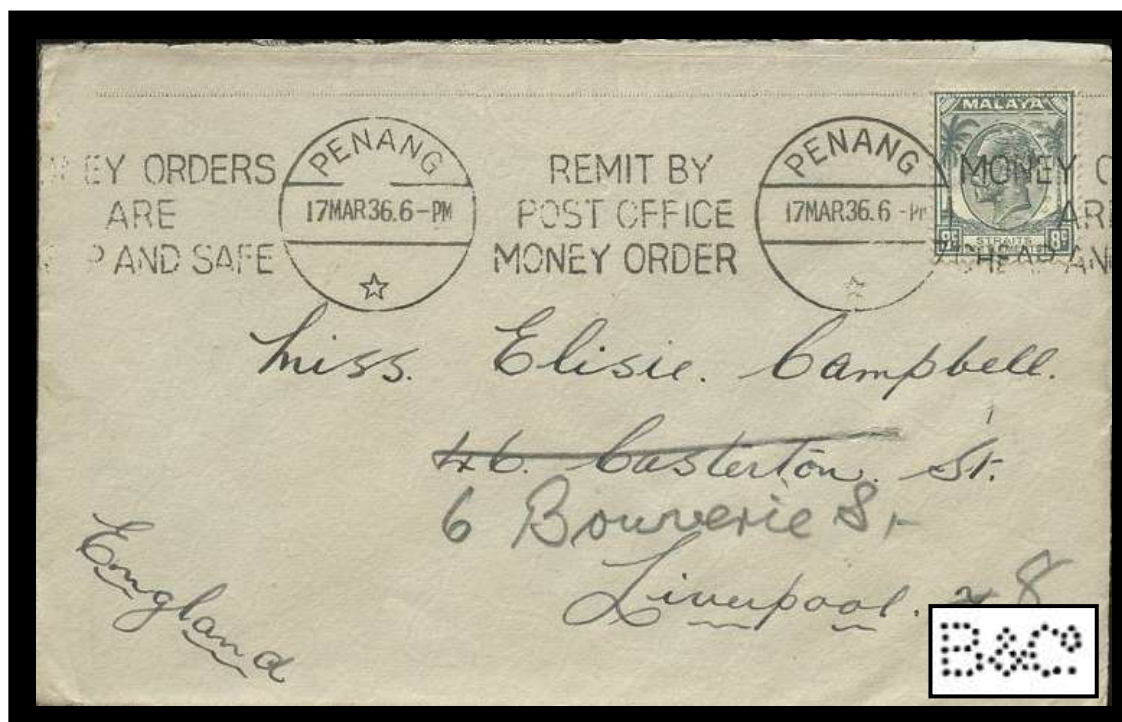 MALAYA
EY ORDERS
ARE
P AND SAFE
PENANG
17MAR36.6-PM
REMIT BY
POST OFFICE
MONEY ORDER
PENANG
17MAR36.6-PM
MONEY O
ARE
CHEAP AN
STRAITS
8c
Miss. Elisie. Campbell.
46. Casterton. St.
6 Bouverie St
Liverpool. 8
England
B&Co